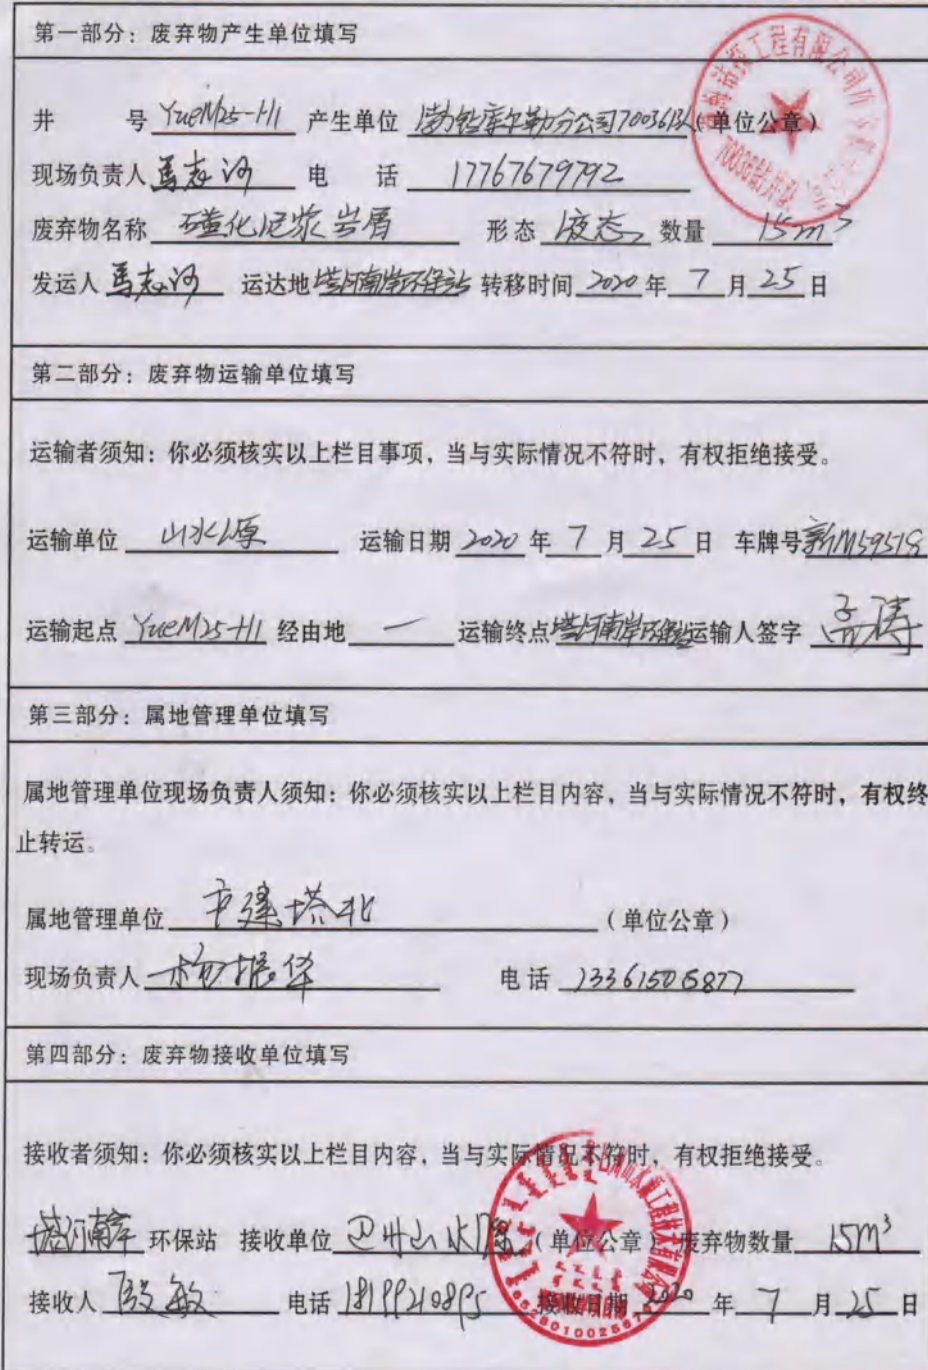 第一部分：废弃物产生单位填写
井 号 YueM25-H1 产生单位 渤钻库尔勒分公司70036队（单位公章）
现场负责人 马志河 电 话 17767679792
废弃物名称 磺化泥浆岩屑 形态 液态 数量 15m³
发运人 马志河 运达地 塔河南岸环保站 转移时间 2020 年 7 月 25 日
第二部分：废弃物运输单位填写
运输者须知：你必须核实以上栏目事项，当与实际情况不符时，有权拒绝接受。
运输单位 山水源 运输日期 2020 年 7 月 25 日 车牌号 新M59519
运输起点 YueM25-H1 经由地 — 运输终点 塔河南岸环保站 运输人签字
第三部分：属地管理单位填写
属地管理单位现场负责人须知：你必须核实以上栏目内容，当与实际情况不符时，有权终
止转运。
属地管理单位 中建塔北 （单位公章）
现场负责人 杨振华 电话
第四部分：废弃物接收单位填写
接收者须知：你必须核实以上栏目内容，当与实际情况不符时，有权拒绝接受。
塔河南岸 环保站 接收单位 巴州山水源（单位公章）废弃物数量 15m³
接收人 殷敏 电话 18199210895 接收日期 2020 年 7 月 25 日